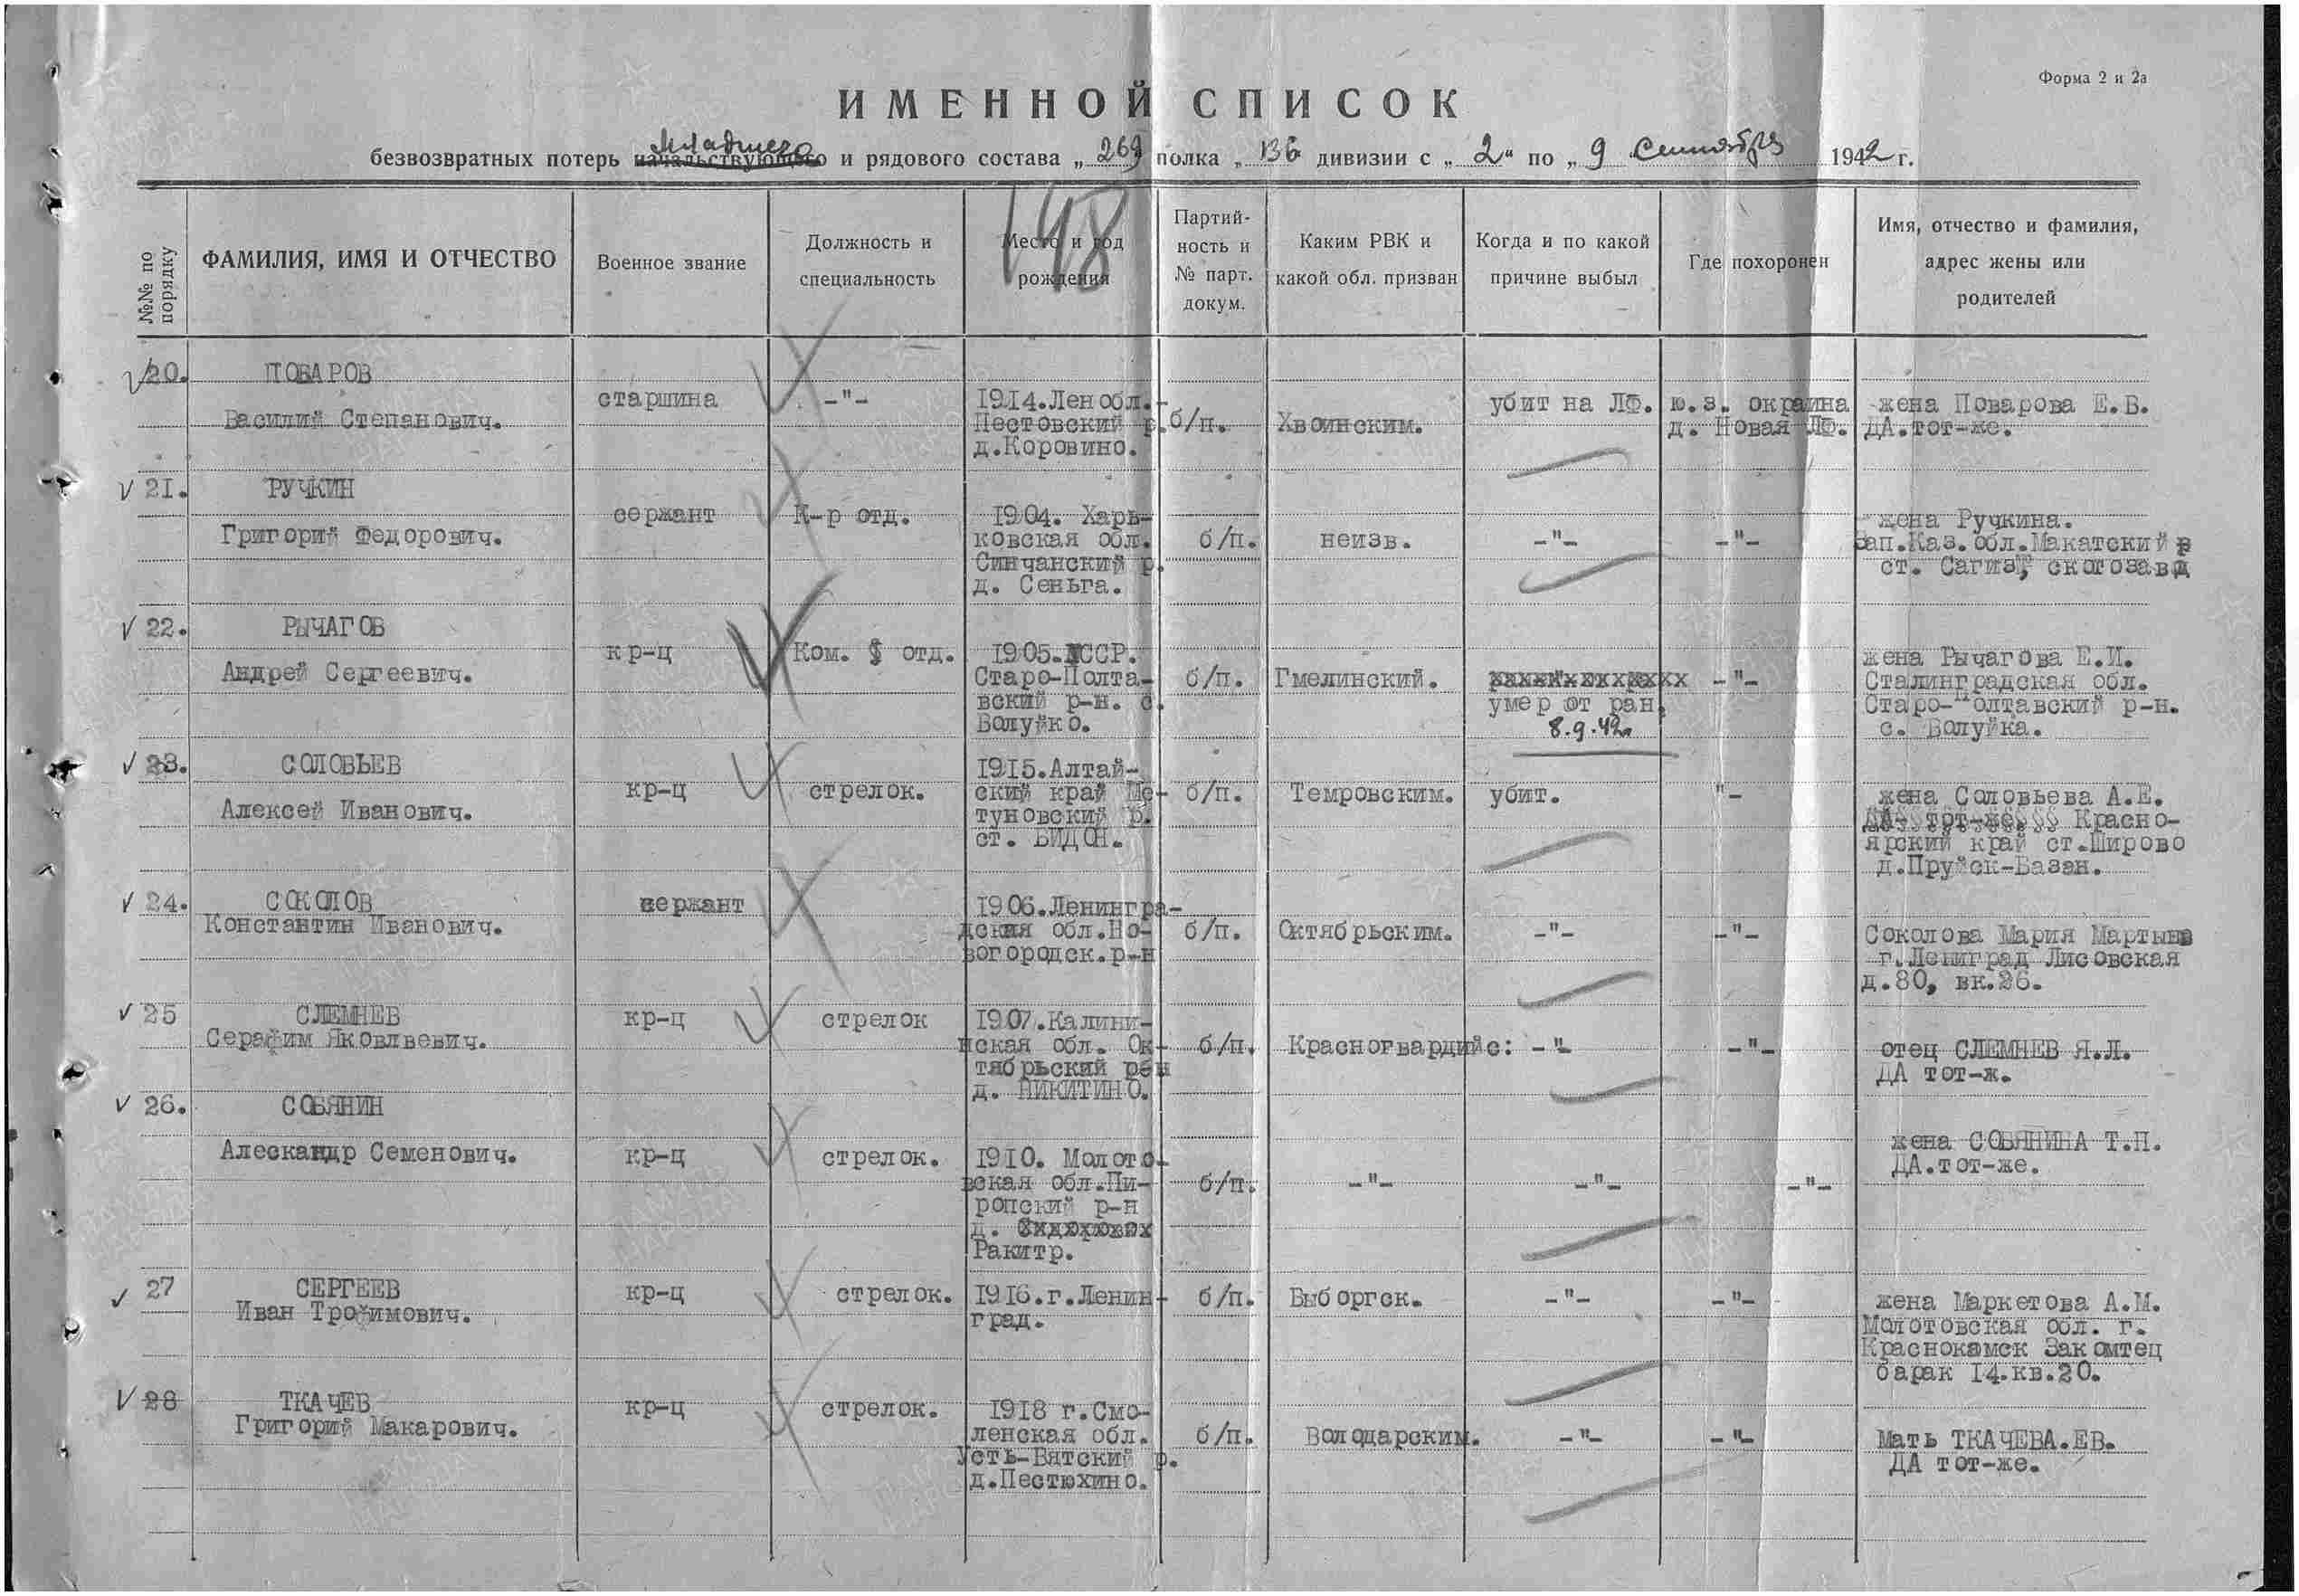 Форма 2 и 2а
ИМЕННОЙ СПИСОК
младшего
безвозвратных потерь начальствующего и рядового состава „ 269 полка „ 136 дивизии с „ 2 " по „ 9 сентября 1942 г.
148
№№ по порядку
ФАМИЛИЯ, ИМЯ И ОТЧЕСТВО
Военное звание
Должность и
специальность
Место и год
рождения
Партий-
ность и
№ парт.
докум.
Каким РВК и
какой обл. призван
Когда и по какой
причине выбыл
Где похоронен
Имя, отчество и фамилия,
адрес жены или
родителей
20.
ПОВАРОВ
Василий Степанович.
старшина
-"-
1914.Лен обл.-
Пестовский р.
д.Коровино.
б/п.
Хвоинским.
убит на ЛФ.
ю.з. окраина
д. Новая ЛФ.
жена Поварова Е.В.
ДА.тот-же.
21.
РУЧКИН
Григорий Федорович.
сержант
К-р отд.
1904. Харь-
ковская обл.
Синчанский р.
д. Сеньга.
б/п.
неизв.
-"-
-"-
жена Ручкина.
Зап.Каз.обл.Макатский р
ст. Сагиз, скотозавд
22.
РЫЧАГОВ
Андрей Сергеевич.
кр-ц
Ком. отд.
1905. ССР.
Старо-Полта-
вский р-н. с.
Волуйко.
б/п.
Гмелинский.
умер от ран.
8.9.42г.
-"-
жена Рычагова Е.И.
Сталинградская обл.
Старо-Полтавский р-н.
с. Волуйка.
23.
СОЛОВЬЕВ
Алексей Иванович.
кр-ц
стрелок.
1915.Алтай-
ский край Ше-
туновский р.
ст. БИДОН.
б/п.
Темровским.
убит.
"-
жена Соловьева А.Е.
ДА тот-же. Красно-
ярский край ст.Широво
д.Пруйск-Базан.
24.
СОКОЛОВ
Константин Иванович.
сержант
1906.Ленингра-
дская обл.Но-
вогородск.р-н
б/п.
Октябрьским.
-"-
-"-
Соколова Мария Мартынв
г.Лениград Лисовская
д.80, вк.26.
25
СЛЕМНЕВ
Серафим Яковлвевич.
кр-ц
стрелок
1907.Калини-
нская обл. Ок-
тябрьский рен
д. НИКИТИНО.
б/п.
Красногвардийс:
-"-
-"-
отец СЛЕМНЕВ Я.Л.
ДА тот-ж.
26.
СОБЯНИН
Алескандр Семенович.
кр-ц
стрелок.
1910. Молото-
вская обл.Пи-
ропский р-н
д.
Ракитр.
б/п.
-"-
-"-
-"-
жена СОБЯНИНА Т.П.
ДА.тот-же.
27
СЕРГЕЕВ
Иван Трофимович.
кр-ц
стрелок.
1916.г.Ленин-
град.
б/п.
Выборгск.
-"-
-"-
жена Маркетова А.М.
Молотовская обл. г.
Краснокамск Закомтец
барак 14.кв.20.
28
ТКАЧЕВ
Григорий Макарович.
кр-ц
стрелок.
1918 г.Смо-
ленская обл.
Усть-Вятский р.
д.Пестюхино.
б/п.
Володарским.
-"-
-"-
Мать ТКАЧЕВА.ЕВ.
ДА тот-же.